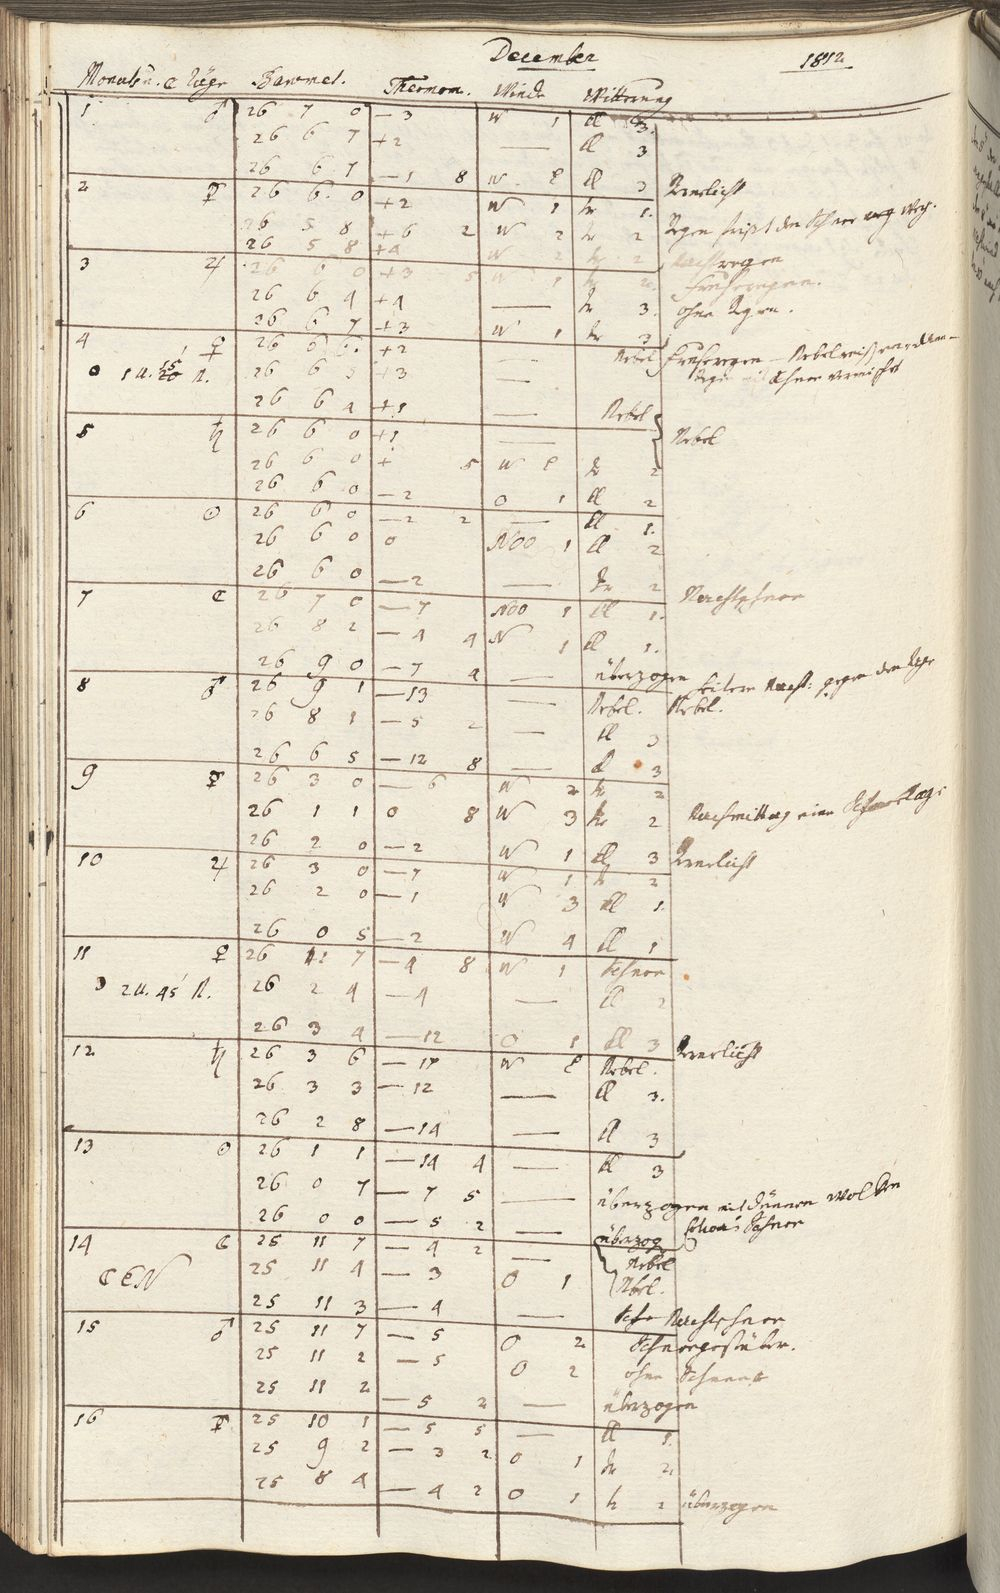 December 1812
Monats u. ☾ Täge Baromet. Thermom. Winde Witterung
1 ♂ 26 7 0 — 3 W 1 tl 3.
26 6 7 +2 — tl 3
26 6 7 — 1 8 W tl 3
2 ☿ 26 6 0 +2 W 1 tr 1.
26 5 8 +6 2 W 2 tr 2 Regen frißt den Schnee weg
26 5 8 +4 W 2 tr 2 Nachtregen
3 ♃ 26 6 0 +3 5 W 1 tr 2. Frühregen.
26 6 4 +4 — tr 3. ohne Regen.
26 6 7 +3 W 1 tr 3
4 ♀ 26 6 +2 — Nebel Frühregen — Nebel
26 6 5 +3 — Regen mit Schnee vermischt
26 6 4 +1 — Nebel
5 ♄ 26 6 0 +1 — Nebel
26 6 0 + 5 W tr 2
26 6 0 — 2 O 1 tl 2
6 ☉ 26 6 0 — 2 2 — tl 1.
26 6 0 0 NOO 1 tl 2
26 6 0 — 2 — tr 2
7 ☾ 26 7 0 — 7 NOO 1 tl 1. Nachtschnee
26 8 2 — 4 4 N 1 tl 1.
26 9 0 — 7 4 — überzogen
8 ♂ 26 9 1 — 13 — Nebel. heitere Nacht: gegen den Tage Nebel.
26 8 1 — 5 2 — tl 3
26 6 5 — 12 8 — tl 3
9 ☿ 26 3 0 — 6 W 2 tr 2
26 1 1 0 8 W 3 tr 2 Nachmittag eine
26 2 0 — 2 W 1 tl 3
10 ♃ 26 3 0 — 7 W 1 tr 2
26 2 0 — 1 W 3 tl 1.
26 0 5 — 2 W 4 tl 1
11 ♀ 26 7 — 4 8 W 1 Schnee
☽ 2 U. 45' N. 26 2 4 — 4 — tl 2
26 3 4 — 12 O 1 tl 3
12 ♄ 26 3 6 — 17 W Nebel.
26 3 3 — 12 — tl 3.
26 2 8 — 14 — tl 3
13 ☉ 26 1 1 — 14 4 — tl 3
26 0 7 — 7 5 — überzogen mit dünnen Wolken
26 0 0 — 5 2 — Schnee
14 ☾ 25 11 7 — 4 2 — überzog
Nebel
25 11 4 — 3 O 1 Nebel.
25 11 3 — 4 — Nachtschnee
15 ♂ 25 11 7 — 5 O 2 Schneegestüber.
25 11 2 — 5 O 2 ohne Schnee
25 11 2 — 5 2 — überzogen
16 ☿ 25 10 1 — 5 5 — tl 1.
25 9 2 — 3 2 O 1 tr 2.
25 8 4 — 4 2 O 1 tr 2 überzogen